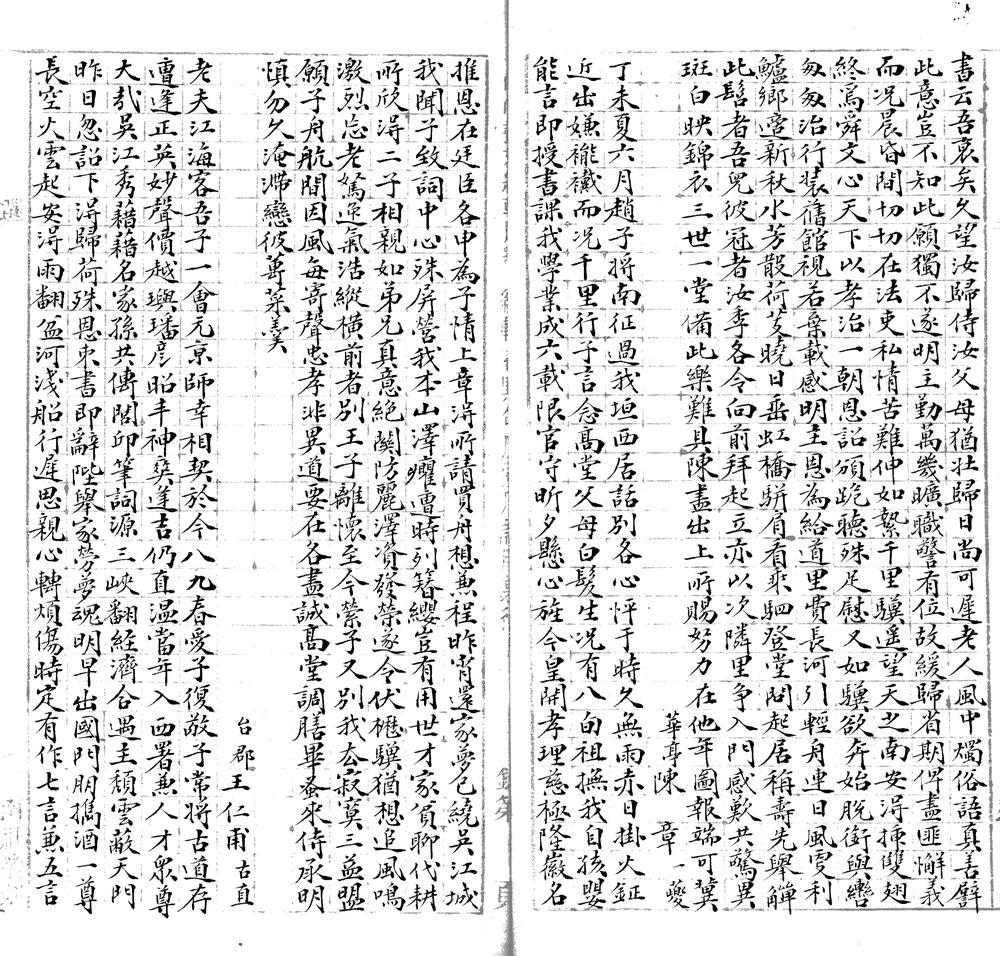 書云吾衰矣久望汝歸侍汝父母猶壯歸日尚可遲老人風中燭俗語真善譬
此意豈不知此願獨不遂明主勤萬幾曠職警有位故緩歸省期俾盡匪懈義
而况晨昏間切切在法吏私情苦難伸如縶千里驥遥望天之南安得插雙翅
終寫舜文心天下以孝治一朝恩詔頒跪聽殊足慰又如驥欲奔始脱銜與轡
匆匆治行裝舊館視若棄載感明主恩為給道里費長河引輕舟連日風雪利
鱸鄉意新秋水芳散荷芰曉日垂虹橋駢肩看乘駟登堂問起居稱壽先舉觶
此髫者吾兒彼冠者汝季各令向前拜起立亦以次隣里争入門感歎共驚異
斑白映錦衣三世一堂備此樂難具陳盡出上所賜努力在他年圖報端可冀
華亭陳 章 一夔
丁未夏六月趙子將南征過我垣西居話别各心怦于時久無雨赤日掛火鉦
近出嫌褦襶而况千里行子言念高堂父母白髮生况有八旬祖撫我自孩嬰
能言即授書課我學業成六載限官守昕夕懸心旌今皇開孝理慈極隆徽名
推恩在廷臣各申為子情上章得所請買舟想兼程昨宵還家夢已繞吴江城
我聞子致詞中心殊屏營我本山澤癯遭時列簪纓豈有用世才家貧聊代耕
所欣得二子相親如弟兄真意絶關防麗澤資發榮遂令伏櫪驥猶想追風鳴
激烈忘老駑逗氣浩縱横前者别王子離懷至今縈子又别我去寂寞三益盟
願子舟航間因風每寄聲忠孝非異道要在各盡誠高堂調膳畢蚤來侍承明
慎勿久淹滯戀彼蓴菜羹
台 郡 王 仁 甫 古直
老夫江海客吾子一會元京師幸相契於今八九春愛子復敬子常將古道存
遭逢正英妙聲價越璵璠彦昭丰神爽逢吉仍直温當年入西署兼人才衆尊
大哉吴江秀藉藉名家孫共傳閣印筆詞源三峽翻經濟合遇主頽雲蔽天門
昨日忽詔下得歸荷殊恩束書即辭陛舉家勞夢魂明早出國門朋擕酒一尊
長空火雲起安得雨翻盆河淺船行遲思親心轉煩傷時定有作七言兼五言